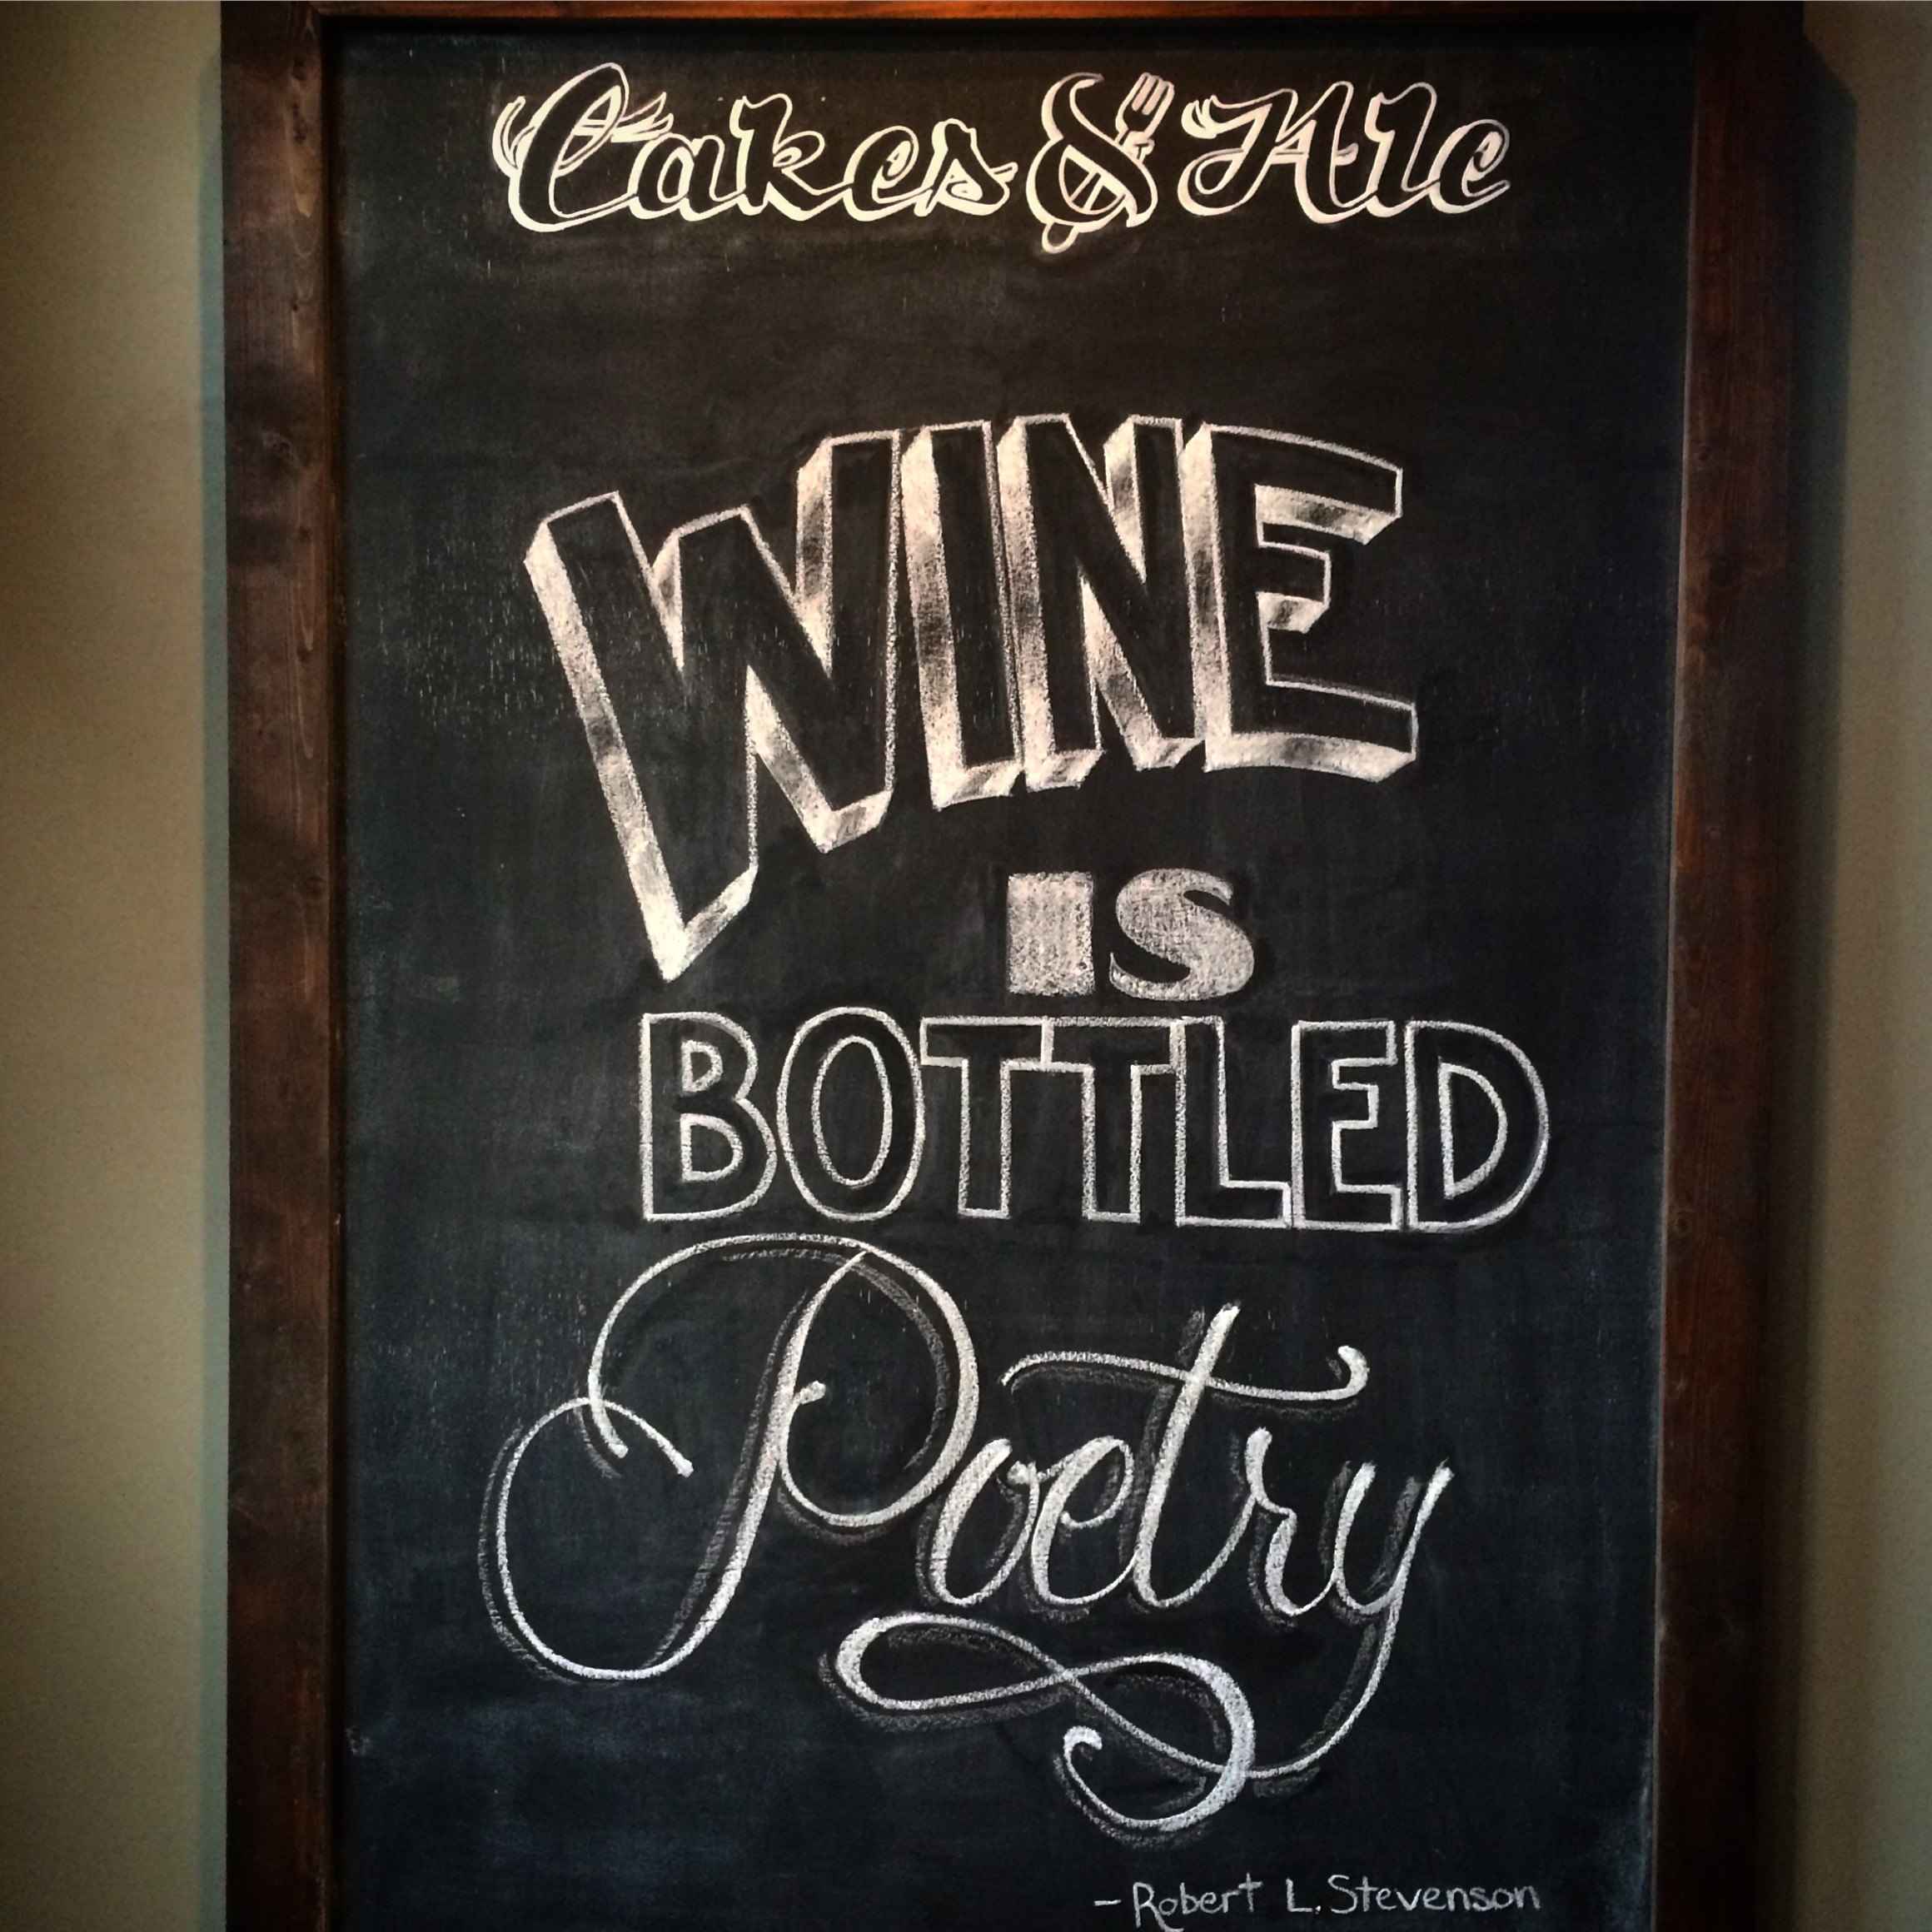 Cakes & Ale
WINE
IS
BOTTLED
Poetry
- Robert L. Stevenson